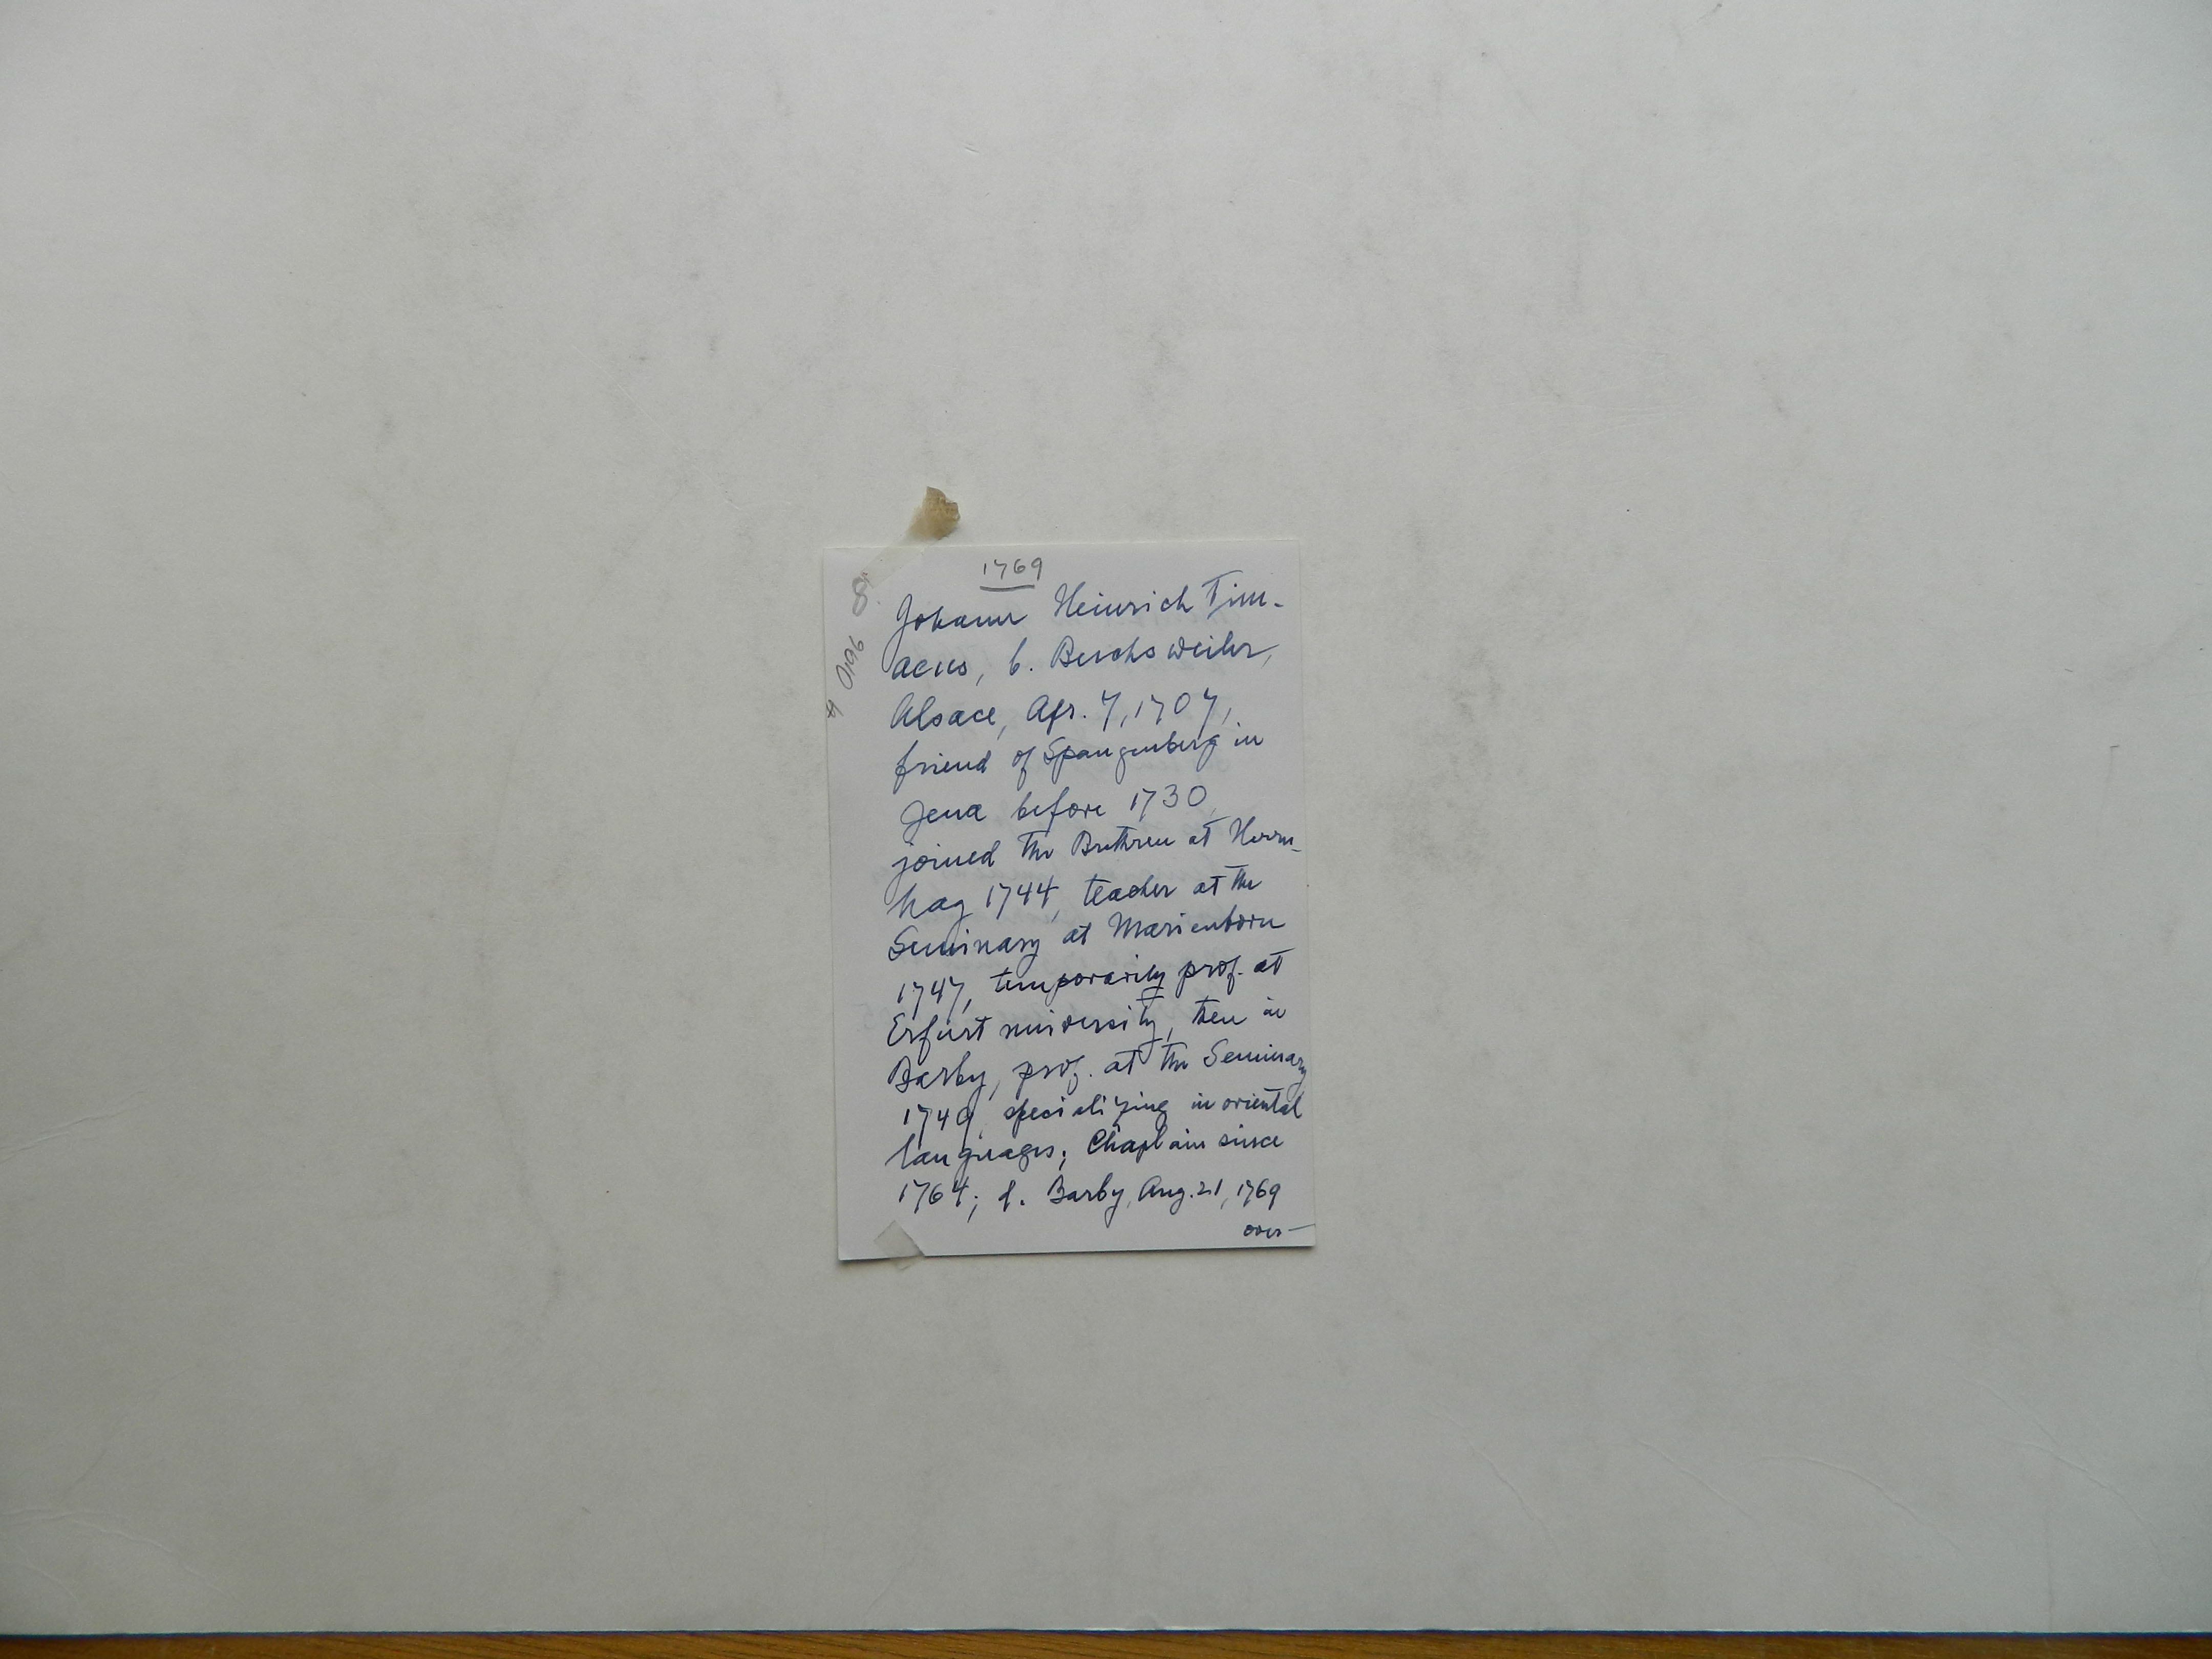 1769
Johann Heinrich Tim-
aeus, b. Buschsweiler,
Alsace, Apr. 7, 1707,
friend of Spangenberg in
Jena before 1730,
joined the Brethren at Herrn-
hag 1744, teacher at the
Seminary at Marienborn
1747, temporarily prof. at
Erfurt university, then in
Barby, prof. at the Seminary
1749, specializing in oriental
languages; Chaplain since
1764; d. Barby, Aug. 21, 1769
over—